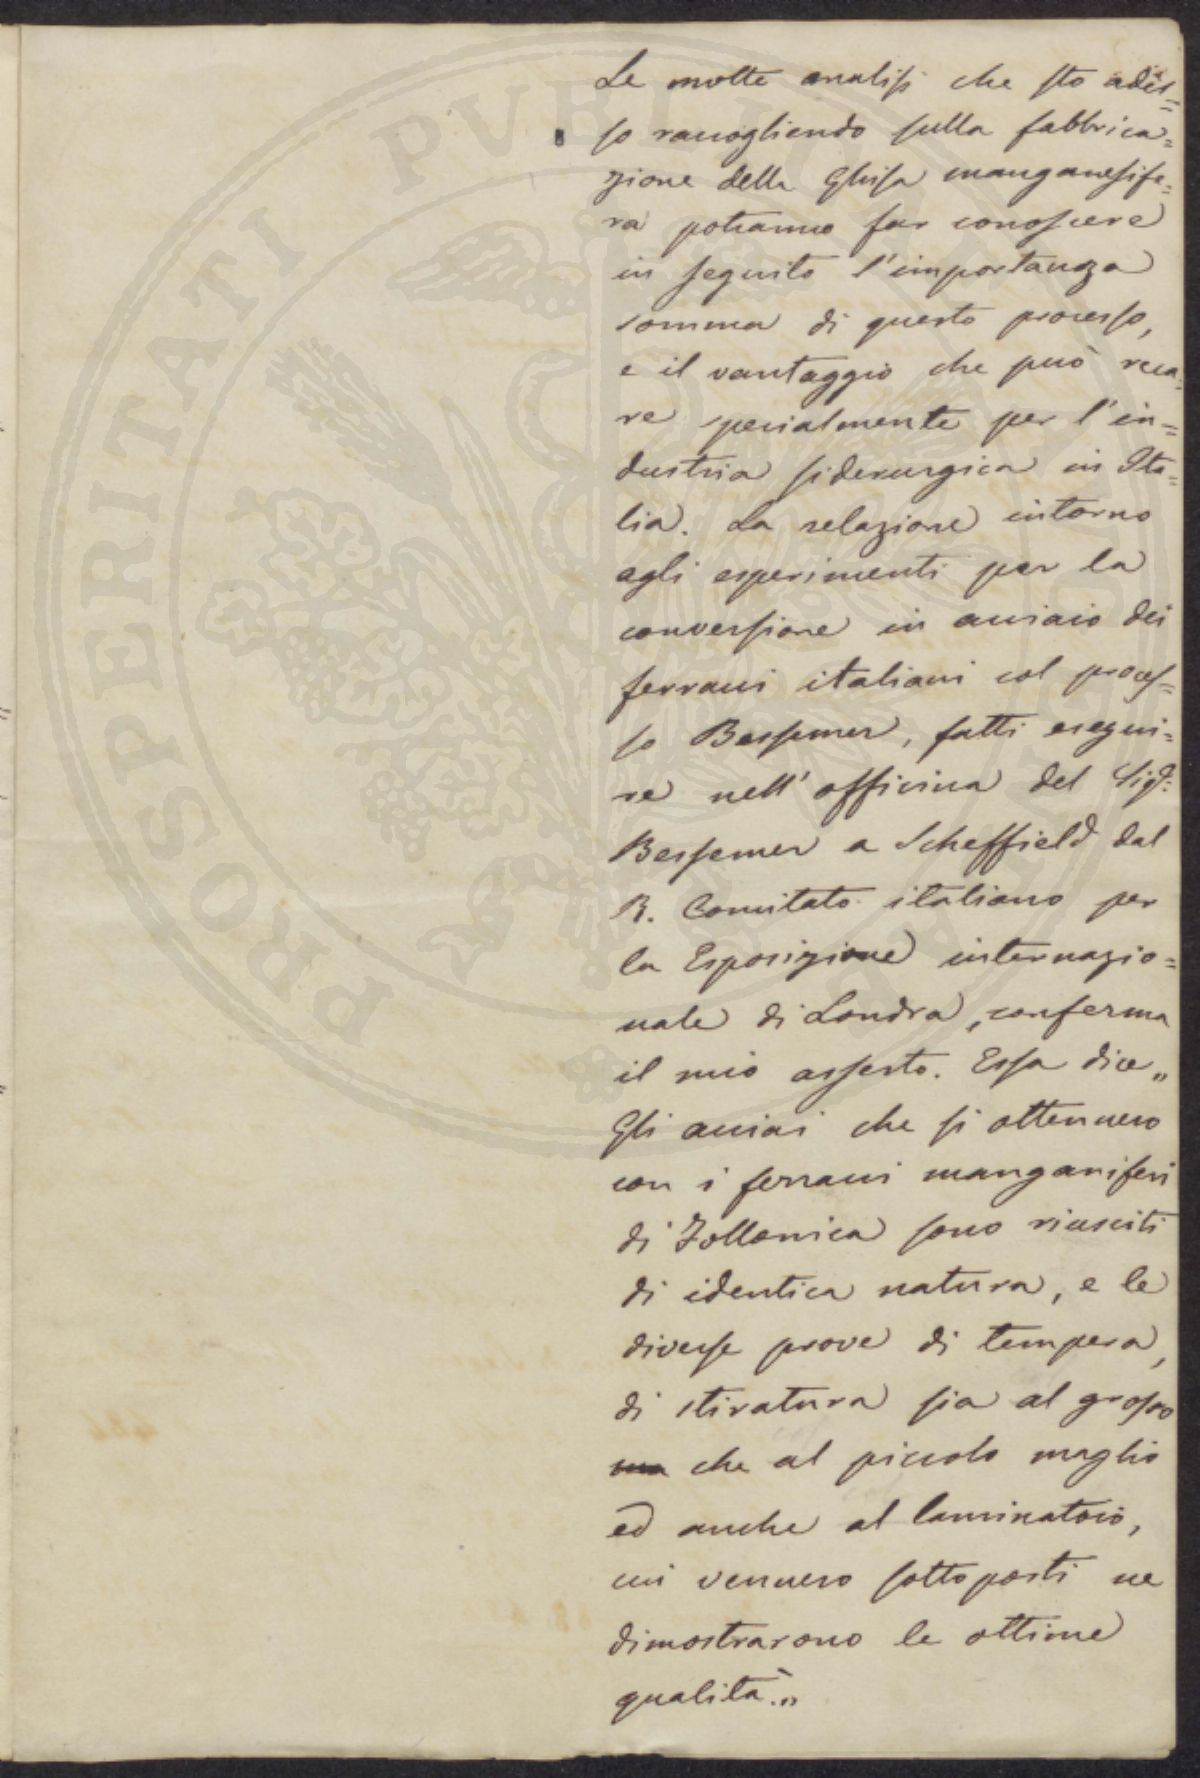 Le molte analisi che sto ades=
so raccogliendo sulla fabbrica=
zione della Ghisa manganesife=
ra potranno far conoscere
in seguito l'importanza
somma di questo processo,
e il vantaggio che può reca=
re specialmente per l'in=
dustria siderurgica in Ita=
lia. La relazione intorno
agli esperimenti per la
conversione in acciaio dei
ferracci italiani col proces=
so Bessemer, fatti esegui=
re nell'officina del Sigr.
Bessemer a Scheffield dal
R. Comitato italiano per
la Esposizione internazio=
nale di Londra, conferma
il mio asserto. Essa dice „
Gli acciai che si ottennero
con i ferracci manganiferi
di Follonica sono riusciti
di identica natura, e le
diverse prove di tempera,
di stiratura sia al grosso
che al piccolo maglio
ed anche al laminatoio,
cui vennero sottoposti ne
dimostrarono le ottime
qualità.„
PROSPERITATI PVBLICAE